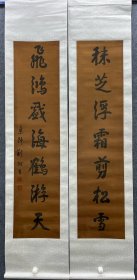 秣芝浮霜剪松雪
飛鴻戲海鶴游天